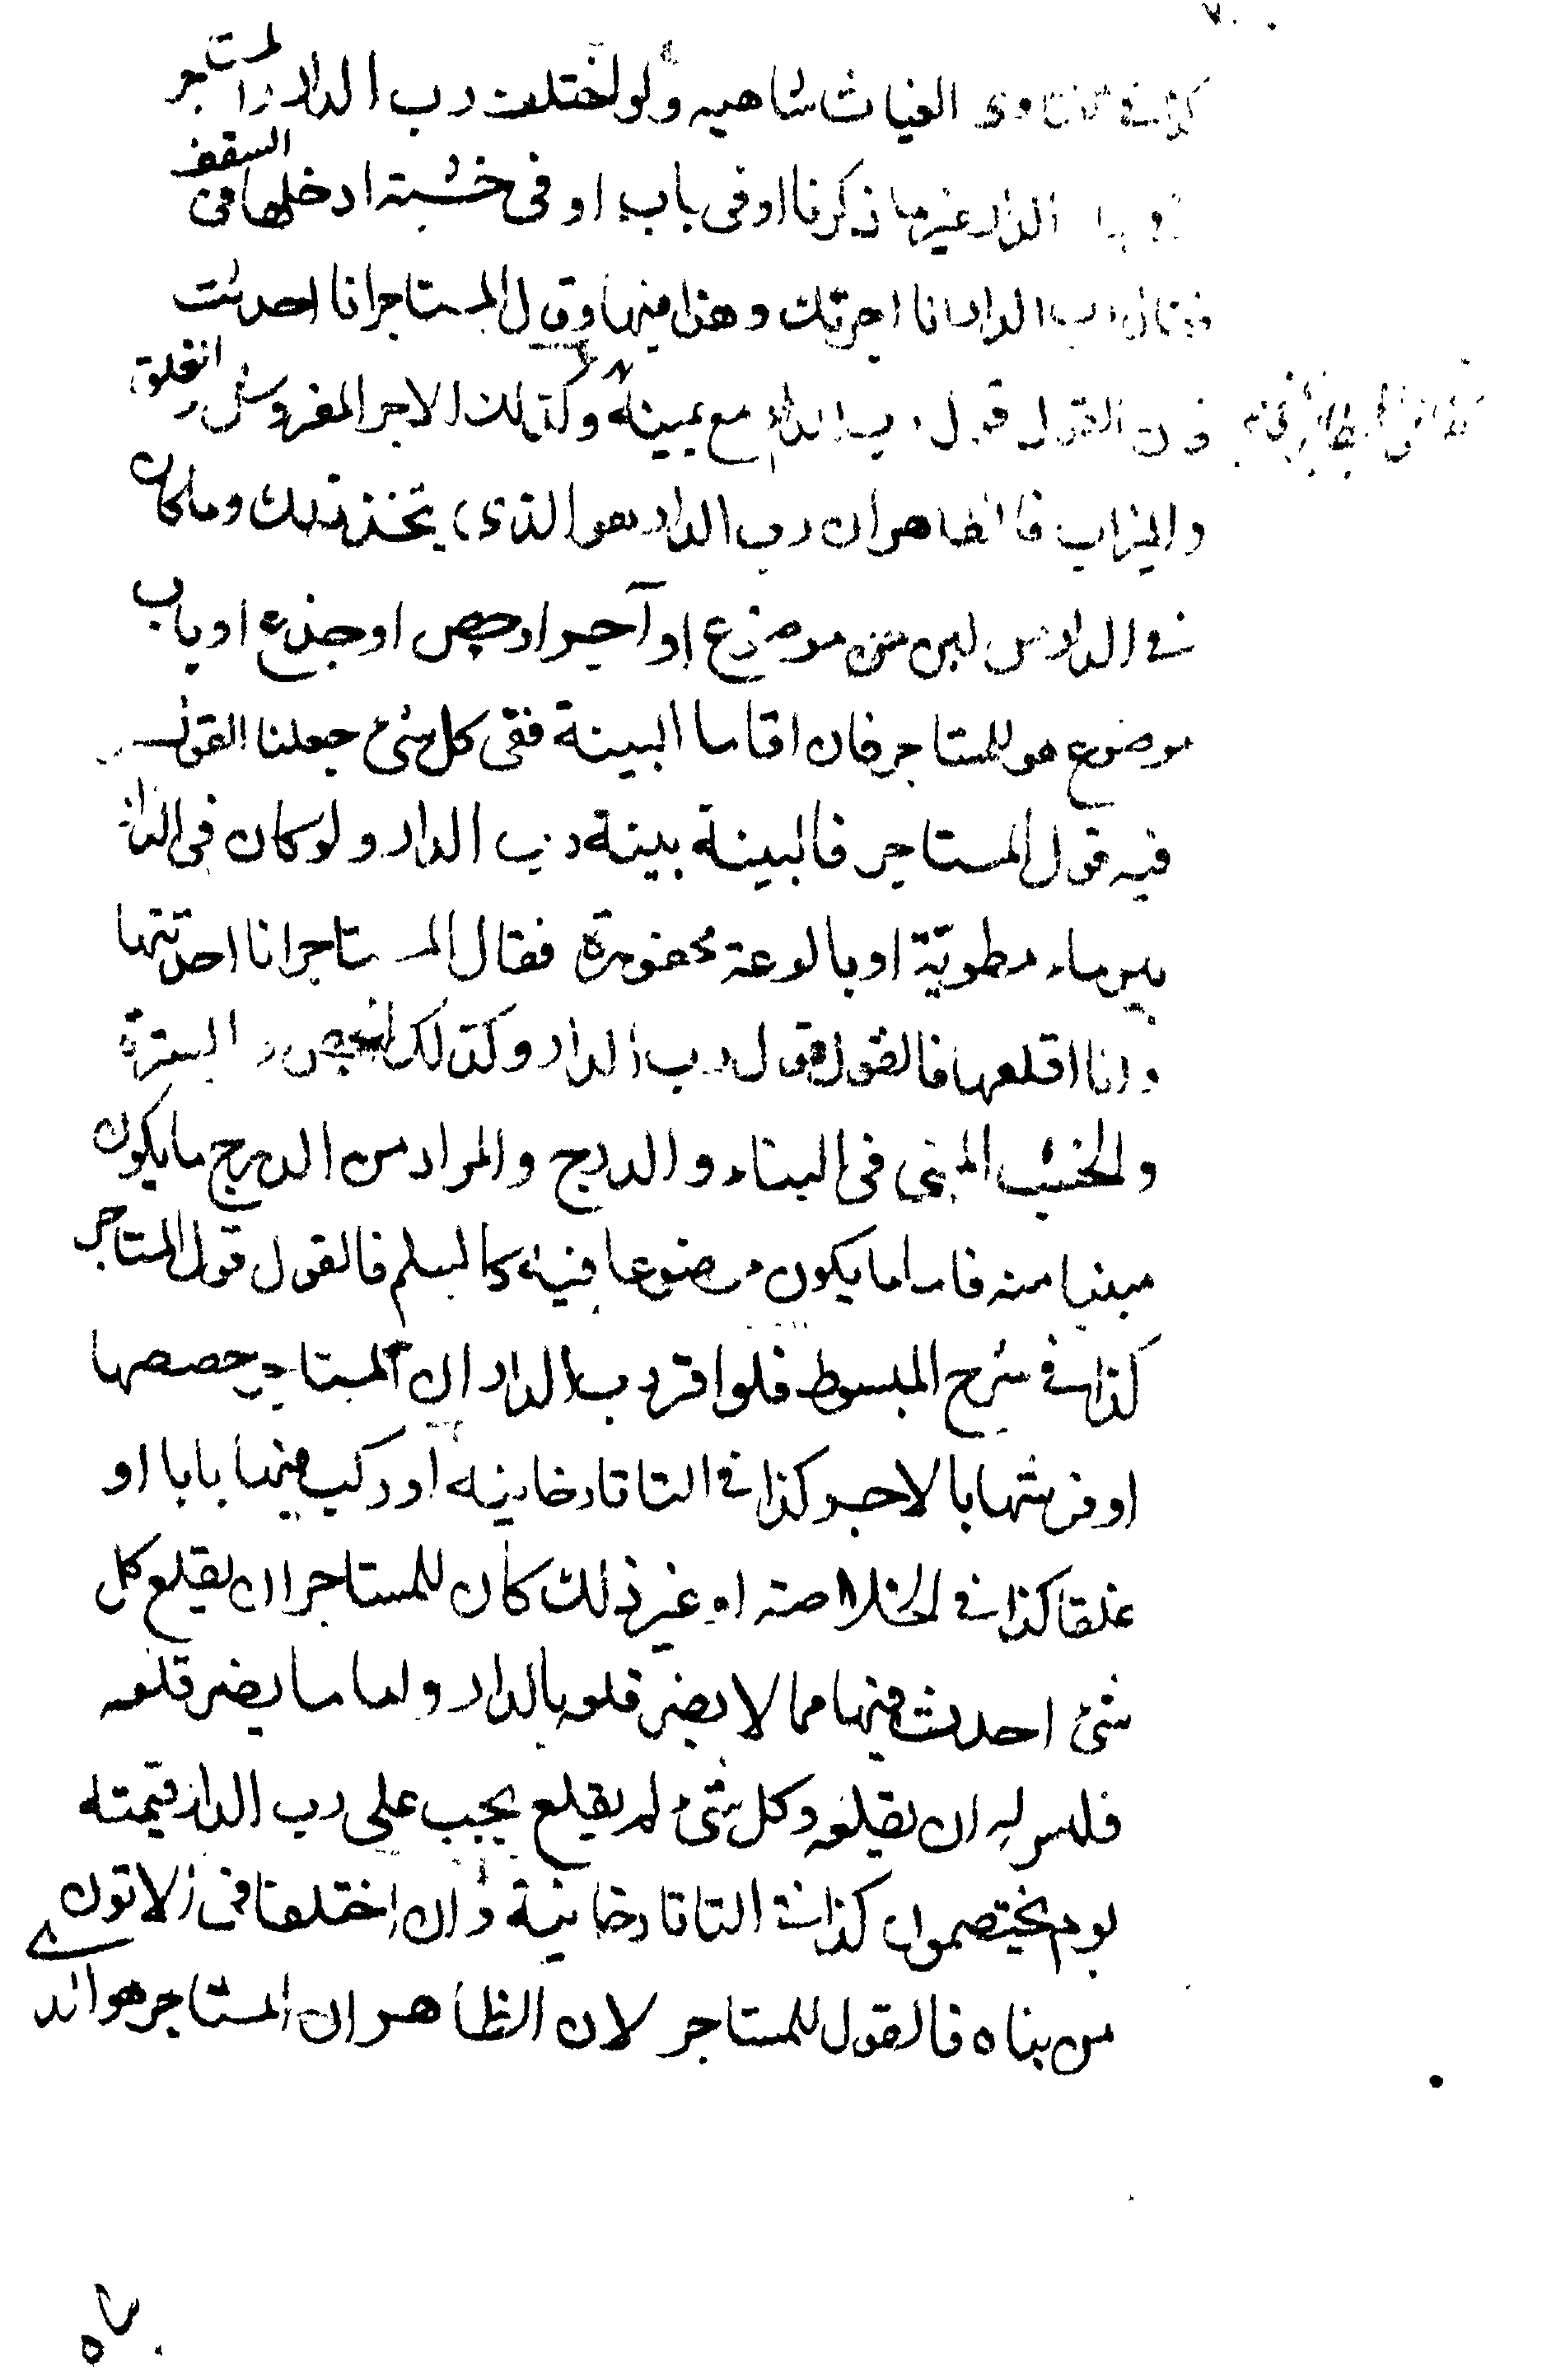 كذا في فتاوى الغياث شاهيه ولو اختلف رب الدار والمستاجر
الدار غير ما ذكرنا او في باب او في خشبة ادخلها في السقف
فقال رب الدار انا اجرتك وهذا فيها وقال المستاجر انا احدثت
القول قول رب الدار مع يمينه وكذلك الاجر المفروش والغلق
والميزاب فالظاهر ان رب الدار هو الذي يتخذ ذلك وما كان
في الدار من لبن موضوع او آجر او جص او جذع او باب
موضوع هو للمستاجر فان اقاما البينة ففي كل شيء جعلنا القول
فيه قول المستاجر فالبينة بينة رب الدار ولو كان في الدار
بير ماء مطويّة او بالوعة محفورة فقال المستاجر انا احدثتها
وانا اقلعها فالقول قول رب الدار وكذلك الخص والسترة
والخشب المبني في البناء والدرج والمراد من الدرج ما يكون
مبنيا منه فاما ما يكون موضوعا فيه كالسلم فالقول قول المستاجر
كذا في شرح المبسوط فلو اقر رب الدار ان المستاجر جصصها
او فرشها بالاجر كذا في التاتارخانيه او ركب فيها بابا او
غلقا كذا في الخلاصة او غير ذلك كان للمستاجر ان يقلع كل
شئ احدث فيها مما لا يضر قلعه بالدار واما ما يضر قلعه
فليس له ان يقلعه وكل شئ لم يقلع يجب على رب الدار قيمته
يوم يختصمون كذا في التاتارخانية وان اختلفا في الاتون
من بناه فالقول للمستاجر لان الظاهر ان المستاجر هو الذي